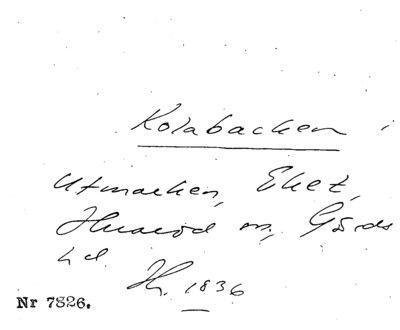 Kolabacken i
Utmarken, Eket,
Huaröd sn, Gärds
hd.
Hr. 1836
Nr 7826.